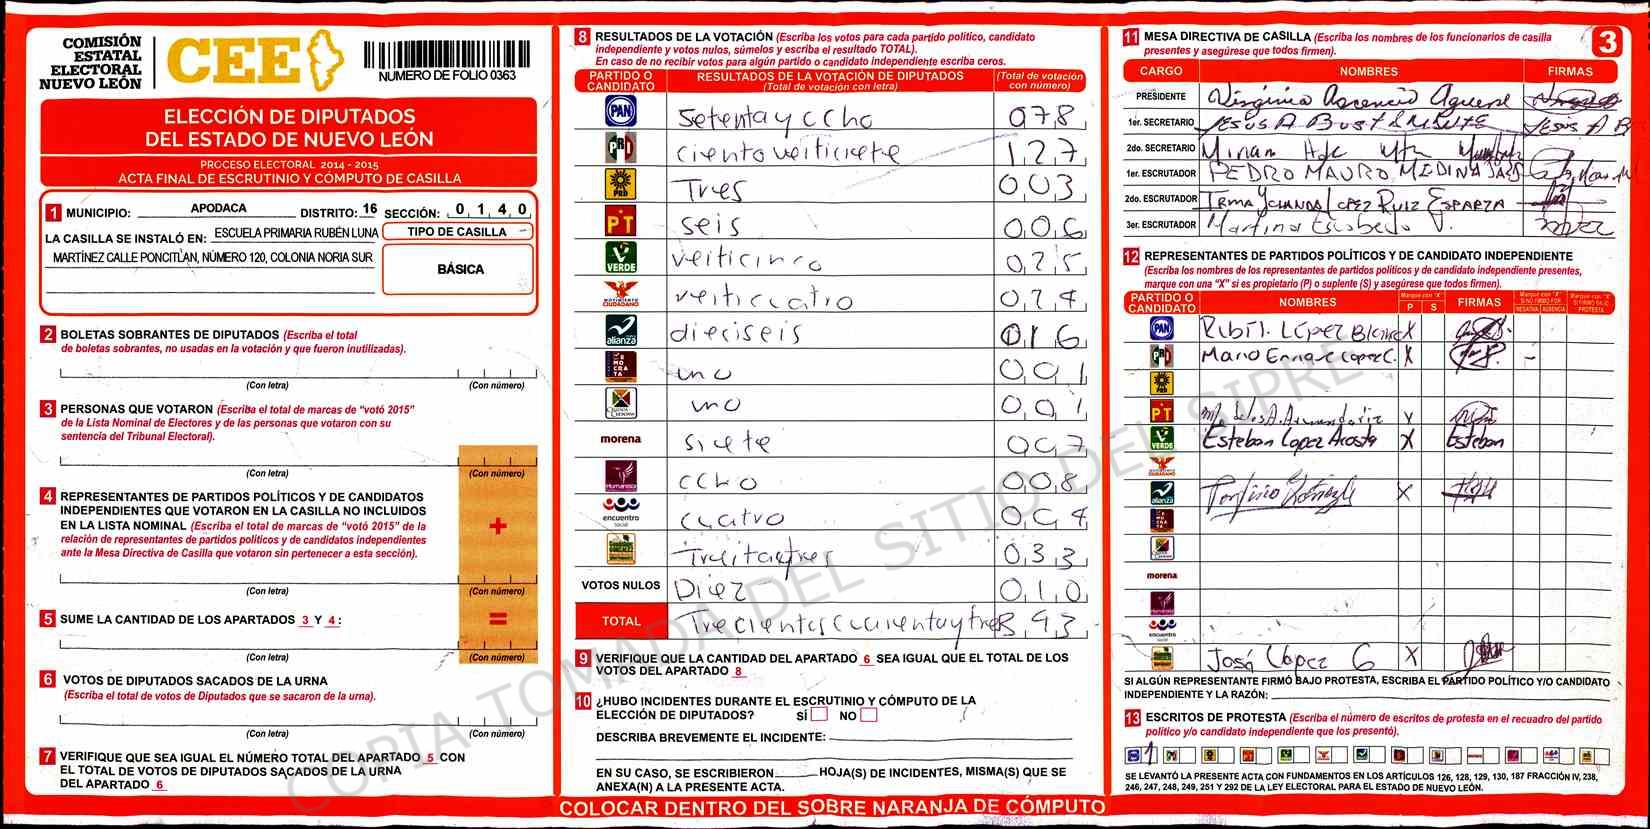 COMISIÓN
ESTATAL
ELECTORAL
NUEVO LEÓN
CEE
NUMERO DE FOLIO 0363
ELECCIÓN DE DIPUTADOS
DEL ESTADO DE NUEVO LEÓN
PROCESO ELECTORAL 2014 - 2015
ACTA FINAL DE ESCRUTINIO Y CÓMPUTO DE CASILLA
1 MUNICIPIO: APODACA DISTRITO: 16 SECCIÓN: 0 1 4 0
LA CASILLA SE INSTALÓ EN: ESCUELA PRIMARIA RUBÉN LUNA
MARTÍNEZ CALLE PONCITLAN, NÚMERO 120, COLONIA NORIA SUR
TIPO DE CASILLA
BÁSICA
2 BOLETAS SOBRANTES DE DIPUTADOS (Escriba el total
de boletas sobrantes, no usadas en la votación y que fueron inutilizadas).
(Con letra) (Con número)
3 PERSONAS QUE VOTARON (Escriba el total de marcas de “votó 2015”
de la Lista Nominal de Electores y de las personas que votaron con su
sentencia del Tribunal Electoral).
(Con letra) (Con número)
4 REPRESENTANTES DE PARTIDOS POLÍTICOS Y DE CANDIDATOS
INDEPENDIENTES QUE VOTARON EN LA CASILLA NO INCLUIDOS
EN LA LISTA NOMINAL (Escriba el total de marcas de “votó 2015” de la
relación de representantes de partidos políticos y de candidatos independientes
ante la Mesa Directiva de Casilla que votaron sin pertenecer a esta sección).
+
(Con letra) (Con número)
5 SUME LA CANTIDAD DE LOS APARTADOS 3 Y 4 :
=
(Con letra) (Con número)
6 VOTOS DE DIPUTADOS SACADOS DE LA URNA
(Escriba el total de votos de Diputados que se sacaron de la urna).
(Con letra) (Con número)
7 VERIFIQUE QUE SEA IGUAL EL NÚMERO TOTAL DEL APARTADO 5 CON
EL TOTAL DE VOTOS DE DIPUTADOS SACADOS DE LA URNA
DEL APARTADO 6
8 RESULTADOS DE LA VOTACIÓN (Escriba los votos para cada partido político, candidato
independiente y votos nulos, súmelos y escriba el resultado TOTAL).
En caso de no recibir votos para algún partido o candidato independiente escriba ceros.
PARTIDO O CANDIDATO RESULTADOS DE LA VOTACIÓN DE DIPUTADOS (Total de votación con letra) (Total de votación con número)
PAN Setenta y ocho 078
PRD ciento veiticiete 127
PRD Tres 003
PT seis 006
VERDE veiticinco 025
MOVIMIENTO CIUDADANO veiticuatro 024
alianza dieciseis 016
DEMOCRATA uno 001
uno 001
morena siete 007
Humanista ocho 008
encuentro social cuatro 004
Treitaytres 033
VOTOS NULOS Diez 010
TOTAL Trecientos cuarentaytres 343
9 VERIFIQUE QUE LA CANTIDAD DEL APARTADO 6 SEA IGUAL QUE EL TOTAL DE LOS
VOTOS DEL APARTADO 8
10 ¿HUBO INCIDENTES DURANTE EL ESCRUTINIO Y CÓMPUTO DE LA
ELECCIÓN DE DIPUTADOS? SÍ NO
DESCRIBA BREVEMENTE EL INCIDENTE:
EN SU CASO, SE ESCRIBIERON HOJA(S) DE INCIDENTES, MISMA(S) QUE SE
ANEXA(N) A LA PRESENTE ACTA.
COLOCAR DENTRO DEL SOBRE NARANJA DE CÓMPUTO
11 MESA DIRECTIVA DE CASILLA (Escriba los nombres de los funcionarios de casilla
presentes y asegúrese que todos firmen).
3
CARGO NOMBRES FIRMAS
PRESIDENTE Virginia Ascencio
1er. SECRETARIO JESUS A JESUS A B
2do. SECRETARIO Miriam
1er. ESCRUTADOR PEDRO MAURO MEDINA
2do. ESCRUTADOR IRMA YOLANDA LOPEZ RUIZ ESPARZA
3er. ESCRUTADOR Martina Escobedo V.
12 REPRESENTANTES DE PARTIDOS POLÍTICOS Y DE CANDIDATO INDEPENDIENTE
(Escriba los nombres de los representantes de partidos políticos y de candidato independiente presentes,
marque con una “X” si es propietario (P) o suplente (S) y asegúrese que todos firmen).
PARTIDO O CANDIDATO NOMBRES Marque con "X" P S FIRMAS Marque con "X" SI NO FIRMÓ POR NEGATIVA AUSENCIA Marque con "X" SI FIRMÓ BAJO PROTESTA
PAN López X
PRD Mario Enrique Lopez C. X
PRD
PT X
VERDE Esteban Lopez Acosta X Esteban
alianza Porfirio X
morena
encuentro social
José López G X
SI ALGÚN REPRESENTANTE FIRMÓ BAJO PROTESTA, ESCRIBA EL PARTIDO POLÍTICO Y/O CANDIDATO
INDEPENDIENTE Y LA RAZÓN:
13 ESCRITOS DE PROTESTA (Escriba el número de escritos de protesta en el recuadro del partido
político y/o candidato independiente que los presentó).
1
SE LEVANTÓ LA PRESENTE ACTA CON FUNDAMENTOS EN LOS ARTÍCULOS 126, 128, 129, 130, 187 FRACCIÓN IV, 238,
246, 247, 248, 249, 251 Y 292 DE LA LEY ELECTORAL PARA EL ESTADO DE NUEVO LEÓN.
COPIA TOMADA DEL SITIO DEL SIPRE